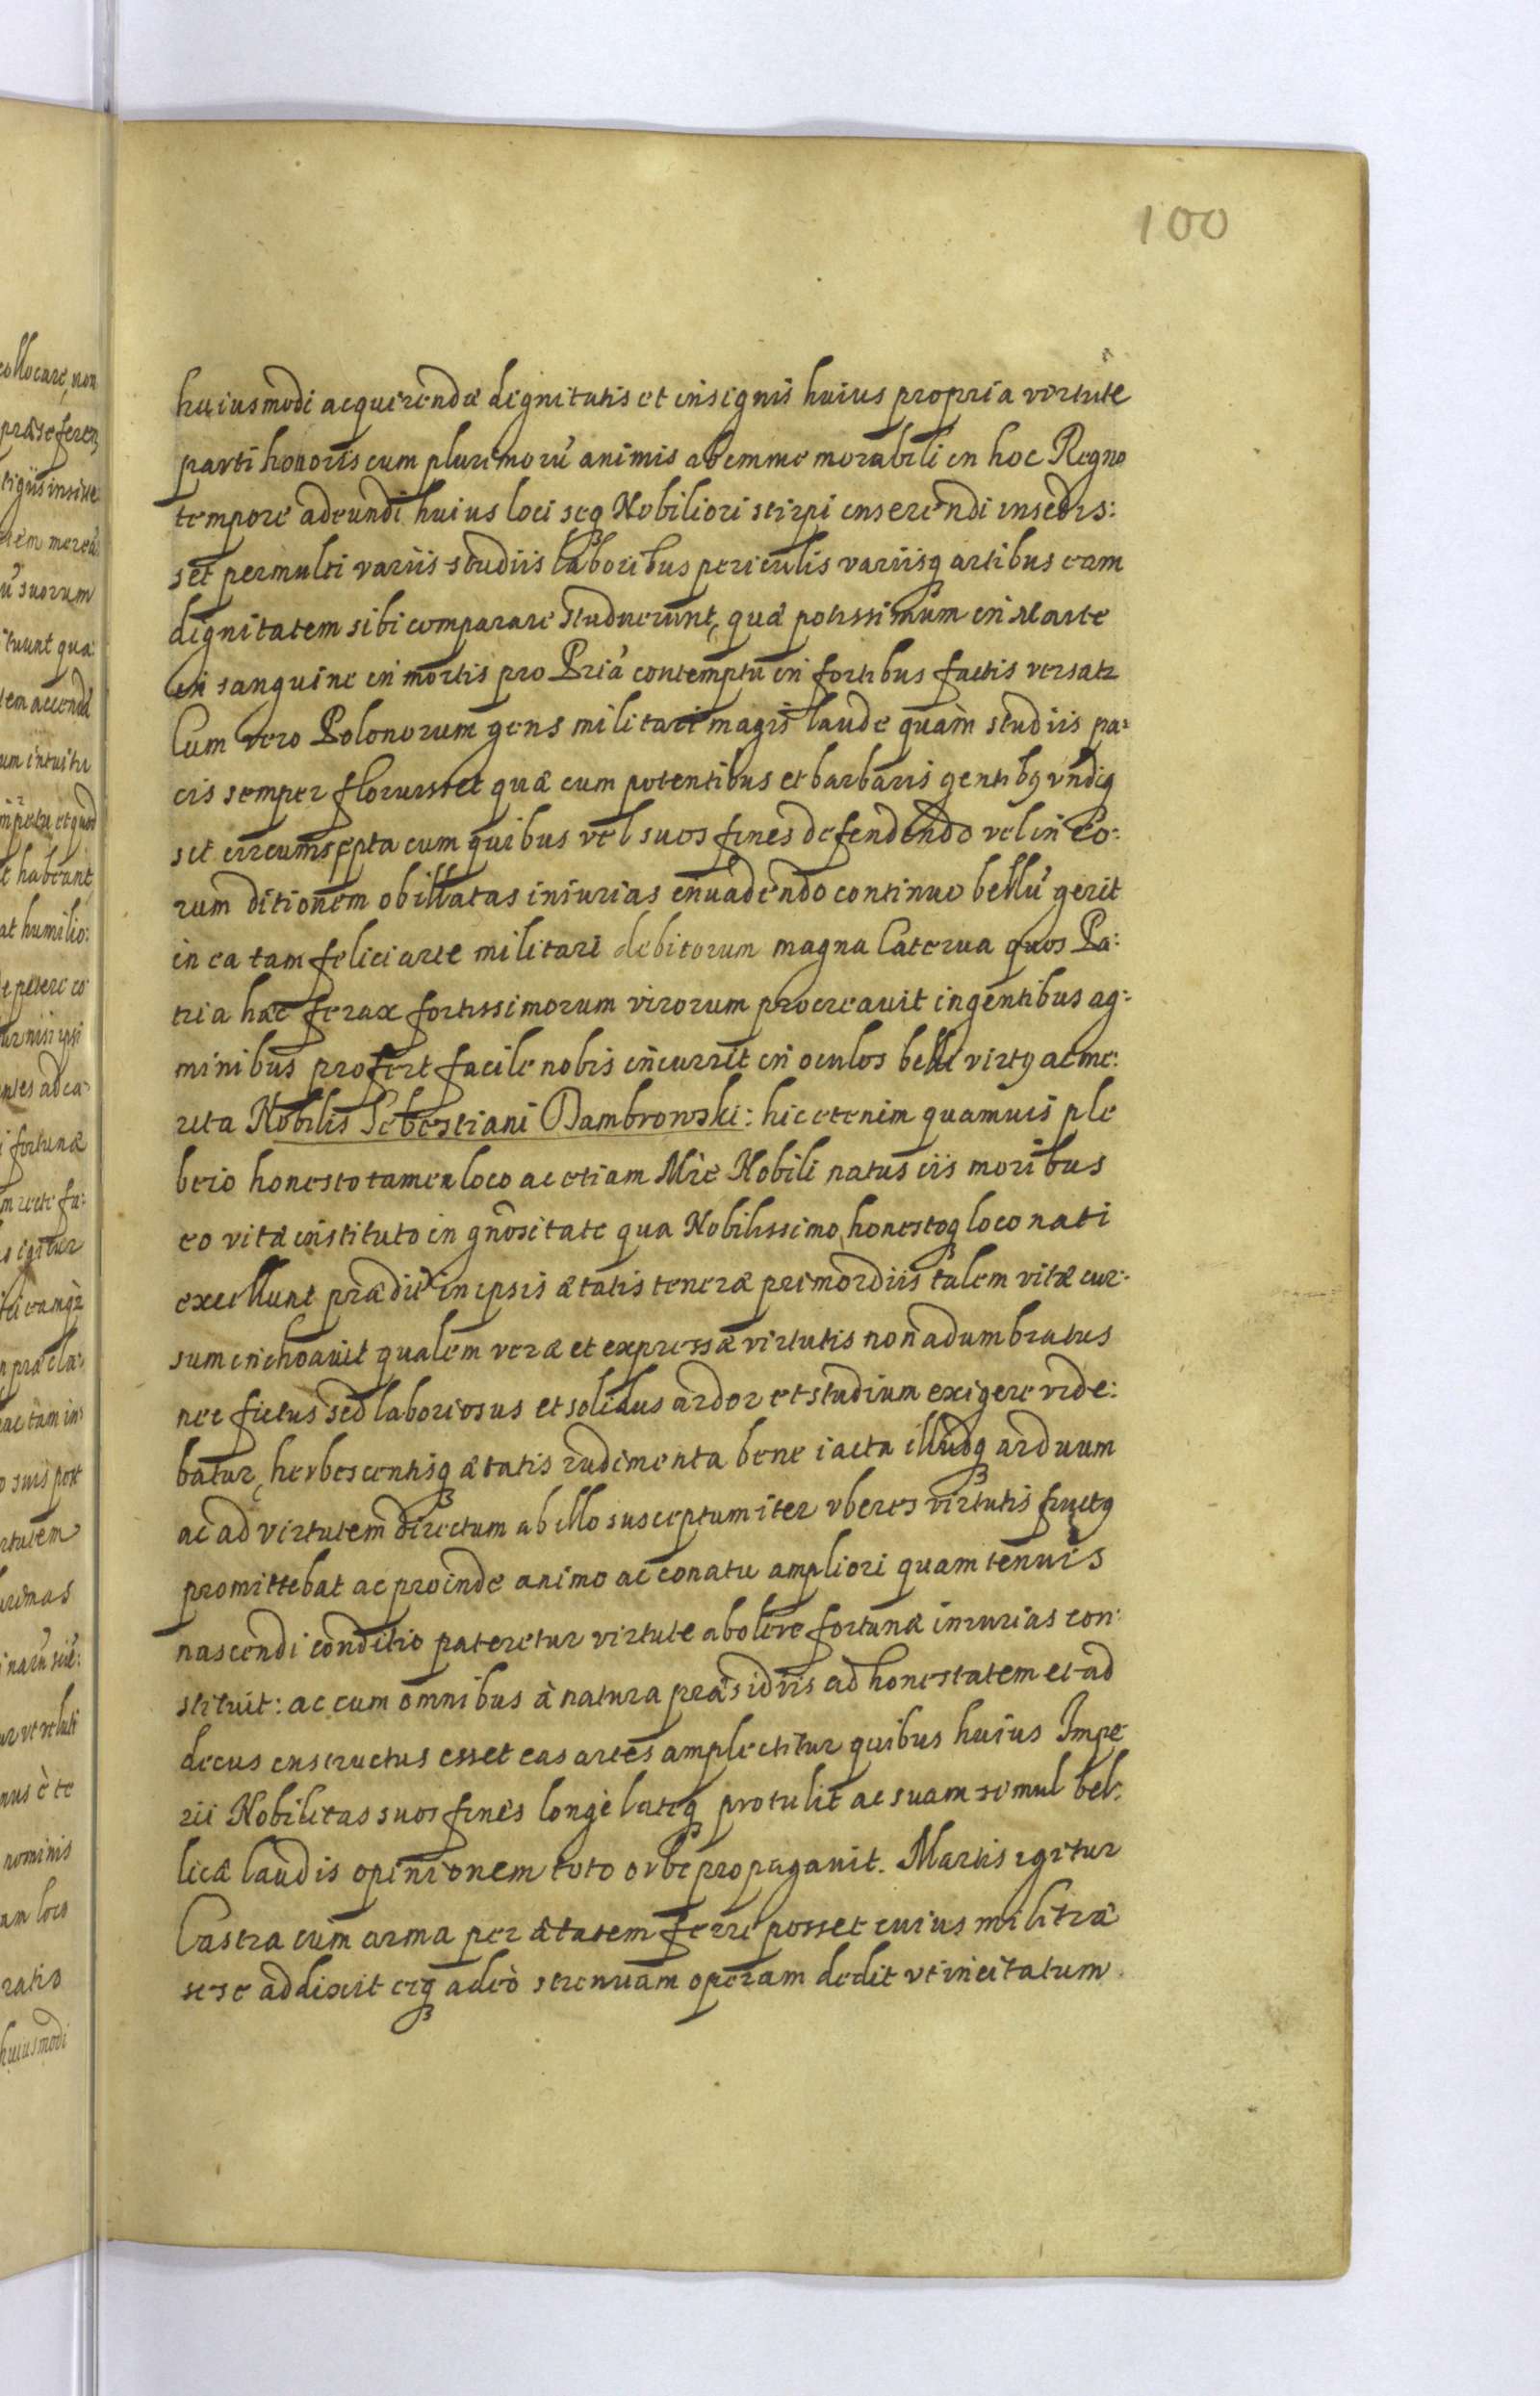 100
huiusmodi acquerendæ dignitatis et insignis huius propria virtute
parti honoris cum plurimorū animis ab emme morabili in hoc Regno
tempore adeundi huius loci seq Nobiliori stirpi inserendi insedis:
set permulti variis studiis laboribus periculis variisq artibus eam
dignitatem sibi comparare studuerunt, quæ potissimum in Marte
in sanguine in mortis pro Pria contemptu in fortibus factis versatr
Cum vero Polonorum gens militari magis laude quàm studiis pa:
cis semper floruisset quæ cum potentibus et barbaris gentibq vndiq
sit circumsepta cum quibus vel suos fines defendendo vel in Eo:
rum ditionem ob illatas iniurias inuadendo continuo bellū gerit
in ea tam felici arte militari debitorum magna Caterua quos Pa:
tria hæc ferax fortissimorum virorum procreauit ingentibus ag:
minibus profert facile nobis incurrit in oculos belli virtq ac me:
rita Nobilis Sebestiani Dambrowski: hic etenim quamuis ple
beio honesto tamen loco ac etiam Mre Nobili natus iis moribus
eo vitæ instituto in gnositate qua Nobilissimo honestoq loco nati
excellunt præditˀ in ipsis ætatis teneræ primordiis talem vitæ cur:
sum inchoauit qualem veræ et expressæ virtutis non adumbratus
nec fictus sed laboriosus et solidus ardor et studium exigere vide:
batur, herbescentisq ætatis rudimenta bene iacta illudq arduum
ac ad virtutem directum ab illo susceptum iter vberes virtutis fructq
promittebat ac proinde animo ac conatu ampliori quam tenuis
nascendi conditio pateretur virtute abolere fortunæ iniurias con:
stituit: ac cum omnibus à natura præsidiis ad honestatem et ad
decus instructus esset eas artes amplectitur quibus huius Impe
rii Nobilitas suos fines longè lateq protulit ac suam simul bel:
licæ laudis opinionem toto orbe propagauit. Martis igitur
Castra cum arma per ætatem ferre posset cuius militiæ
sese addixit eiq adeò strenuam operam dedit vt incitatum